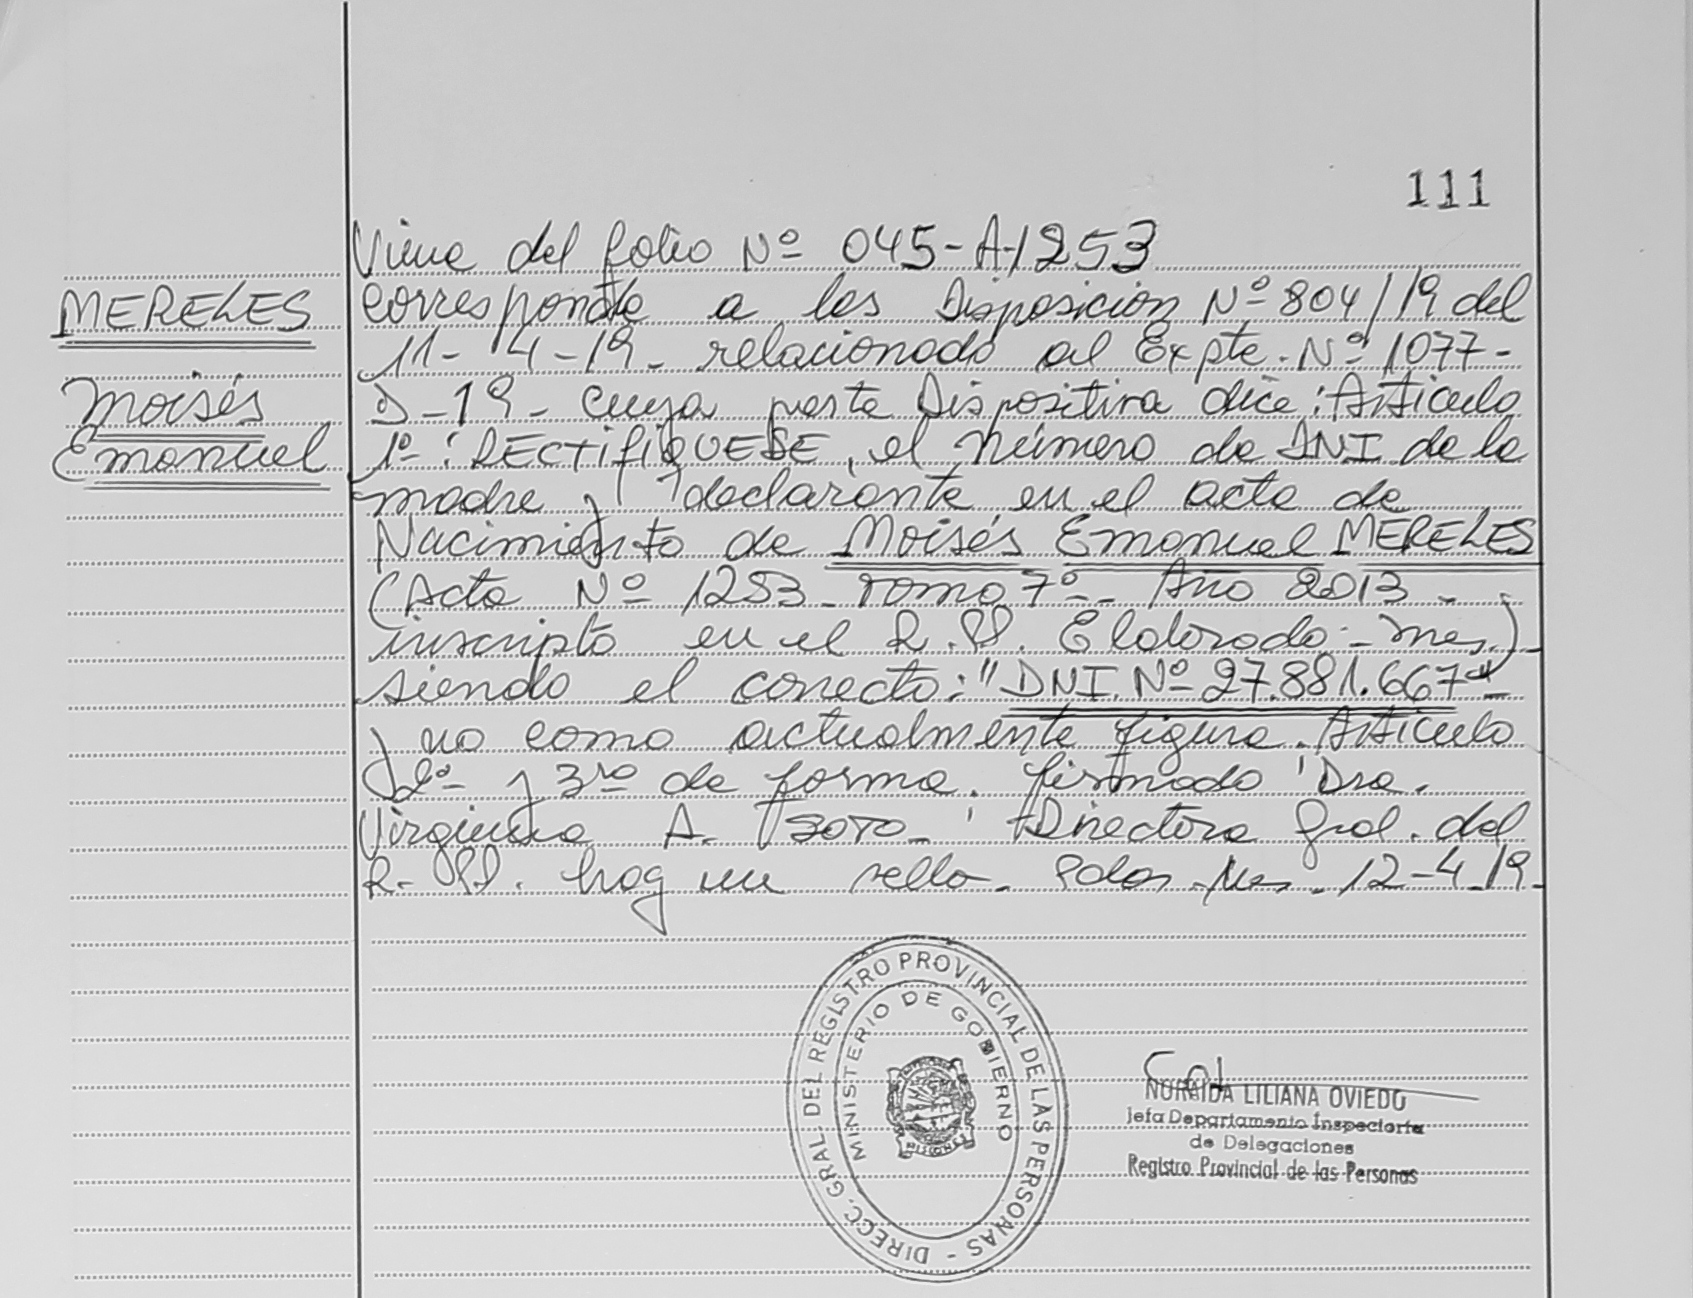 111
Viene del folio Nº 045-A-1253
MERELES
Moisés
Emanuel
corresponde a las Disposición Nº 804/19 del
11-4-19- relacionado al Expte. Nº 1077-
D-19- cuya parte Dispositiva dice: Artículo
1º: RECTIFIQUESE, el número de DNI de la
madre y declarante en el acta de
Nacimiento de Moisés Emanuel MERELES
(Acta Nº 1253- Tomo 7º- Año 2013-
inscripto en el R.PP. Eldorado- Mnes.)
siendo el correcto: "DNI. Nº 27.881.667"
y no como actualmente figura. Artículo
2º y 3ro de forma. firmado Dra.
Virginia A. Soto- Directora Gral. del
R. PP. hay un sello- Pdas. Mes. 12-4-19-
DIRECC. GRAL. DEL REGISTRO PROVINCIAL DE LAS PERSONAS -
MINISTERIO DE GOBIERNO
MISIONES
NORAIDA LILIANA OVIEDO
Jefa Departamento Inspectoría
de Delegaciones
Registro Provincial de las Personas